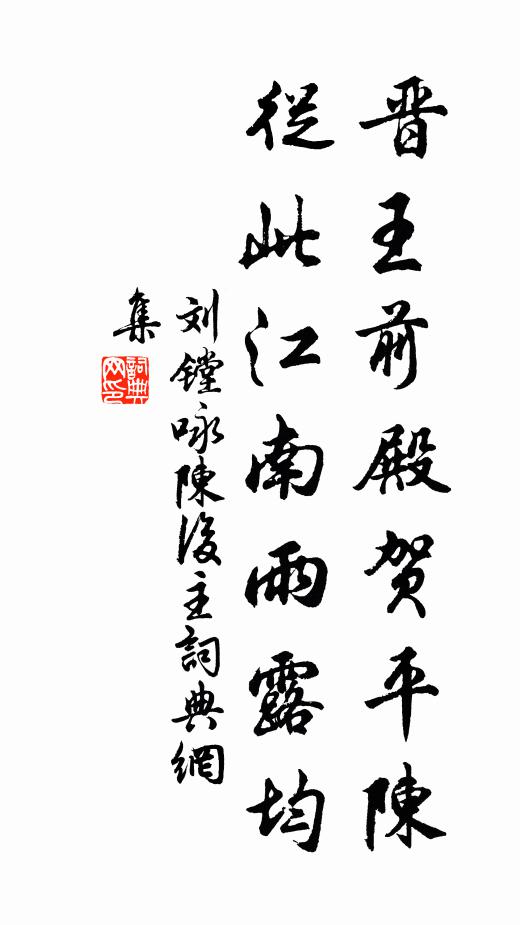 晋王前殿贺平陳
從此江南雨露均
刘镗咏陳後主詞典網
集
詞典
网印